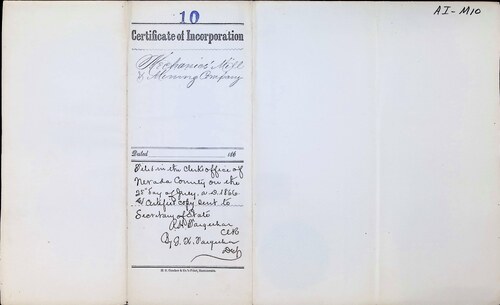 AI-M10
10
Certificate of Incorporation
Mechanics' Mill
& Mining Company
Dated 186
Filed in the Clerks office of
Nevada County on the
25th day of July, A.D. 1866
& Certified copy sent to
Secretary of State
R.H. Farquhar
Clk
By J. K. Farquhar